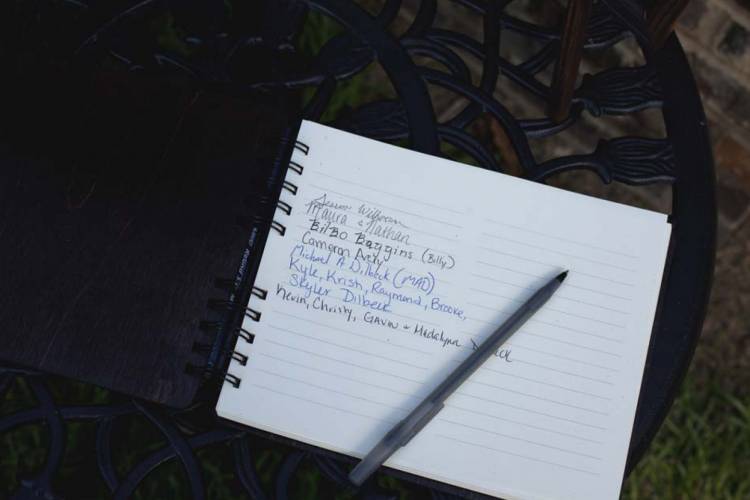 Maura & Nathan
BilBO Baggins (Billy)
Cameron Ardy
Michael A Dilbeck (MAD)
Kyle, Krish, Raymond, Brooke,
Skyler Dilbeck
Kevin, Christy, GAVIN + Madalynn